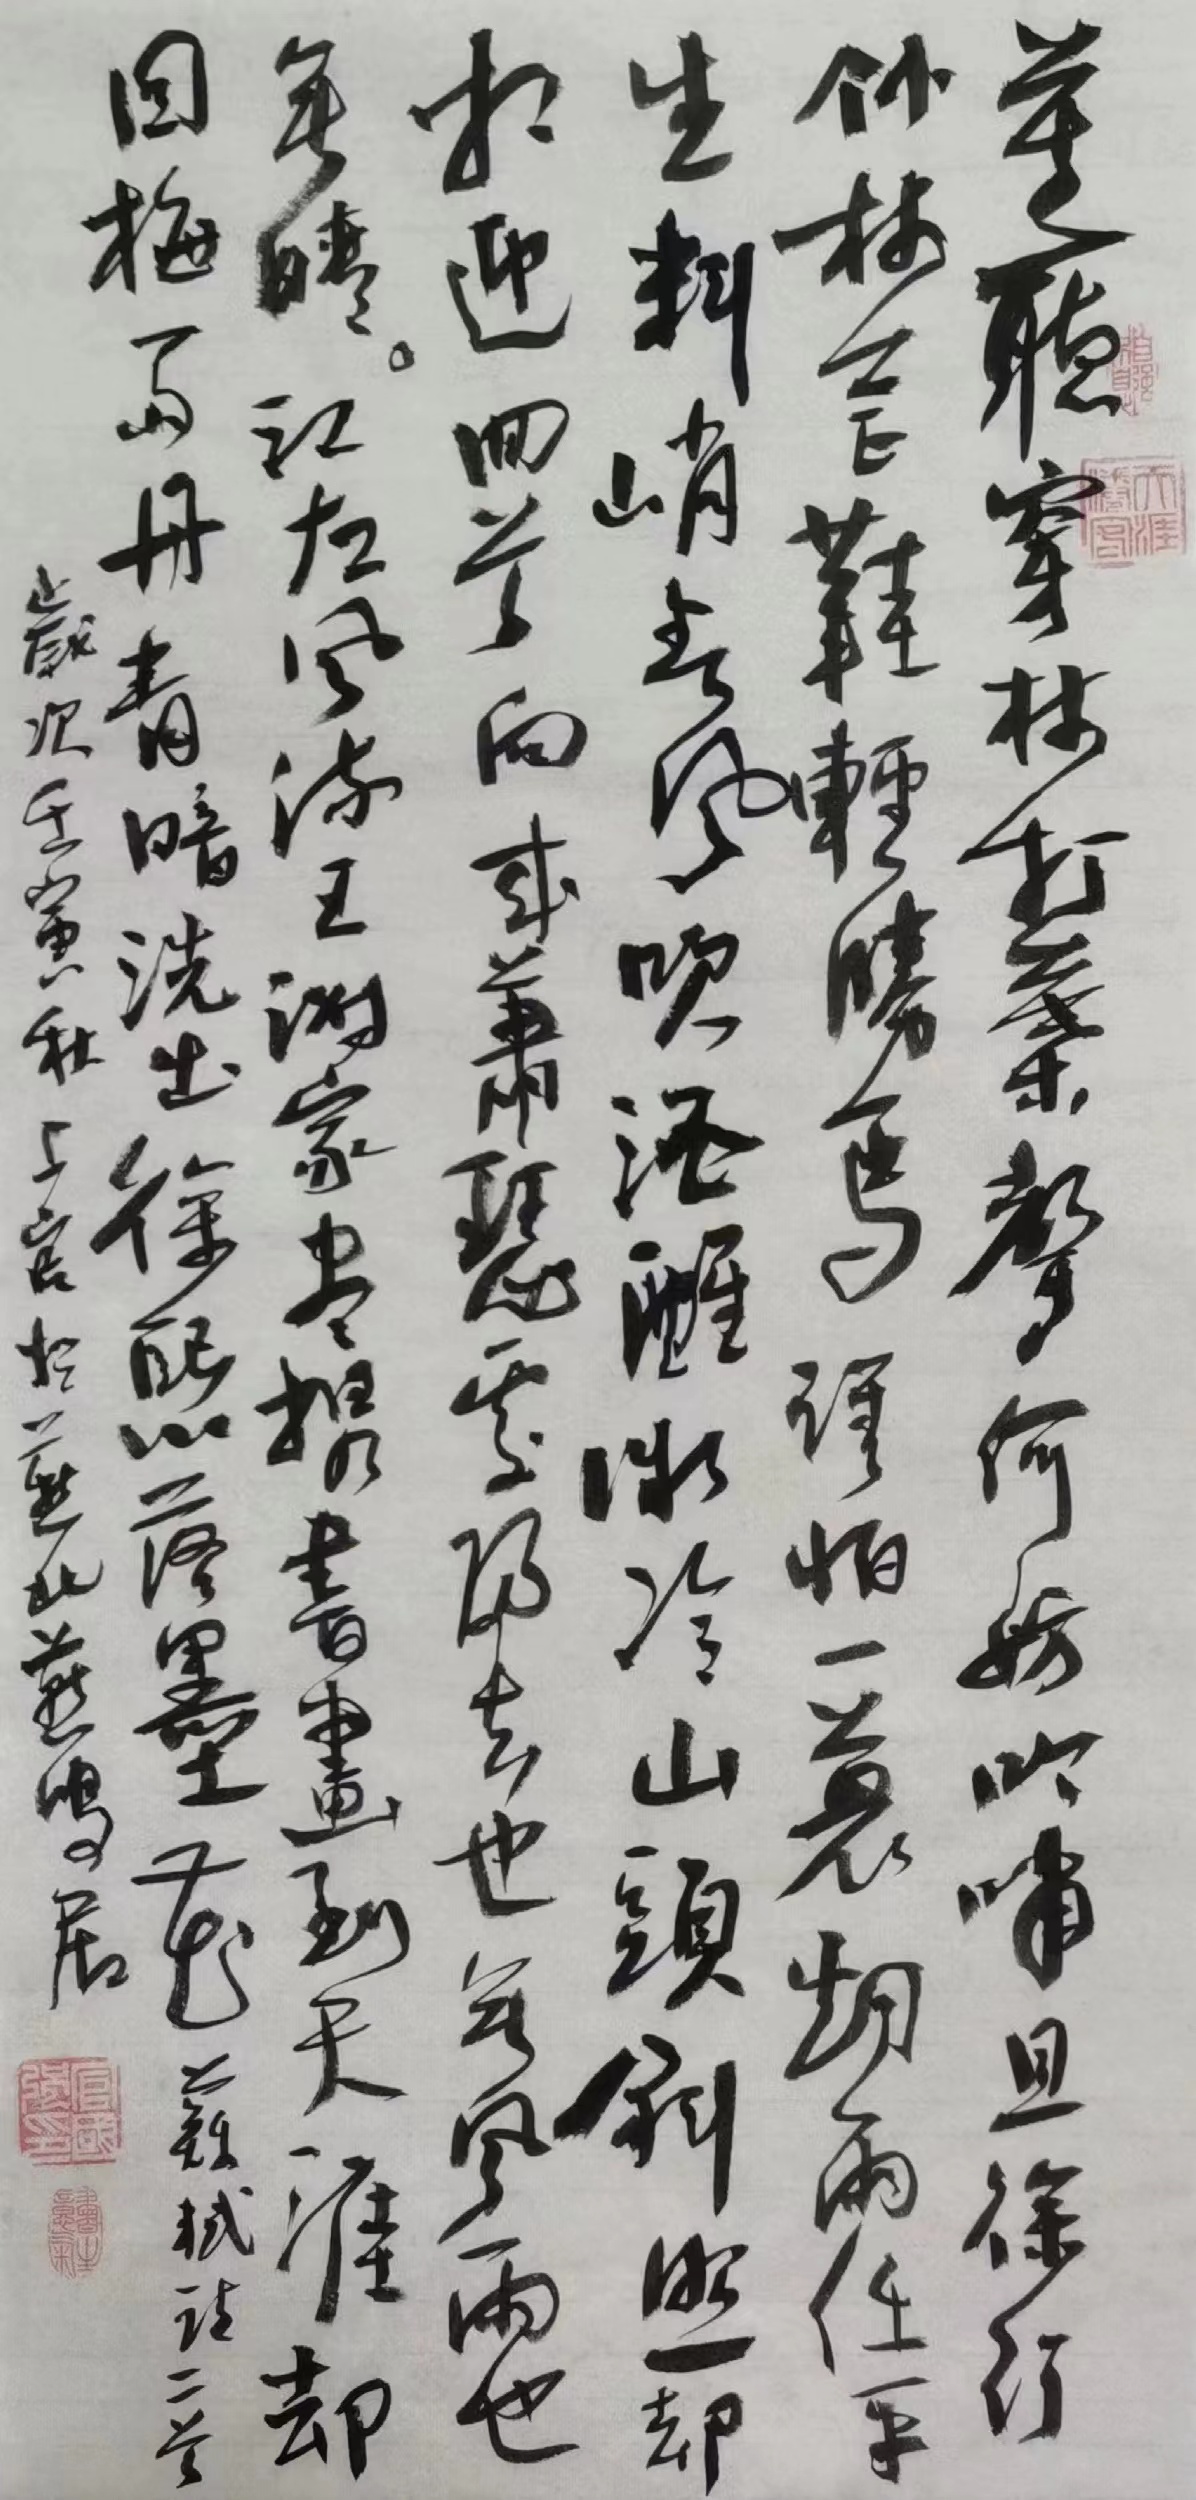 莫聽穿林打葉聲何妨吟嘯且徐行
竹杖芒鞋輕勝馬誰怕一蓑烟雨任平
生料峭春風吹酒醒微冷山頭斜照却
相迎回首向来蕭瑟處歸去也無風雨也
無晴。江左風流王謝家盡攜書畫到天涯却
因梅雨丹青暗洗出徐熙落墨花 蘇軾詩二首
歲次壬寅秋上官於燕北燕鳴居